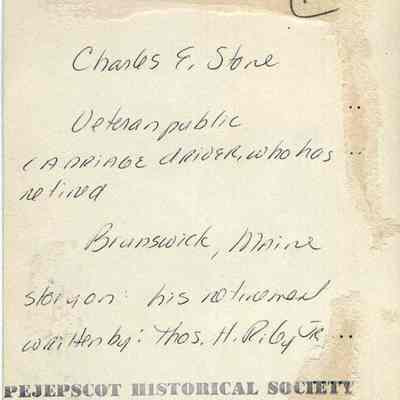 Charles E. Stone
Veteran public
CARRIAGE driver, who has
retired
Brunswick, Maine
story on: his retirement
written by: Thos. H. Riley Jr.
PEJEPSCOT HISTORICAL SOCIETY